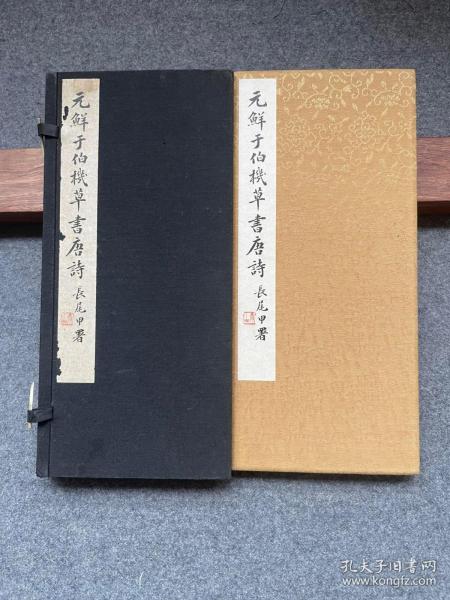 元鮮于伯機草書唐詩 長尾甲署
元鮮于伯機草書唐詩 長尾甲署
孔夫子旧书网
www.kongfz.com